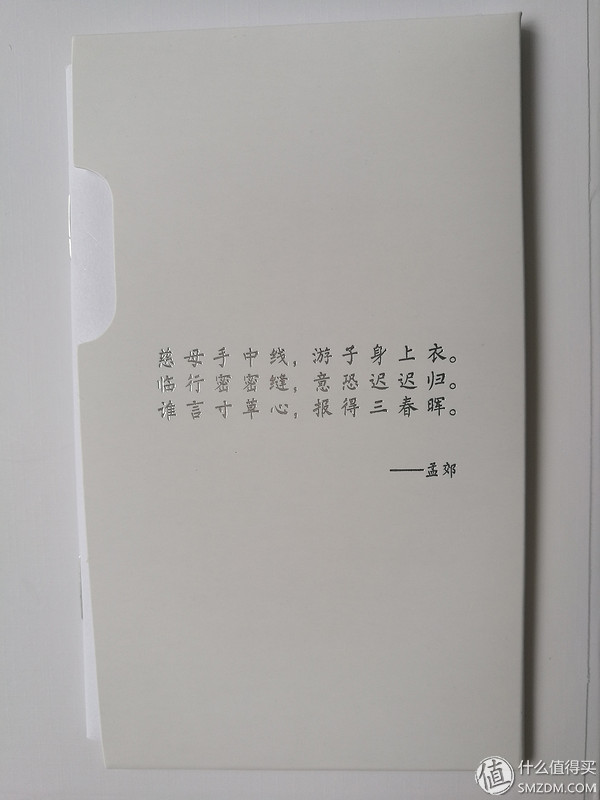 慈母手中线，游子身上衣。
临行密密缝，意恐迟迟归。
谁言寸草心，报得三春晖。
——孟郊
值 什么值得买
SMZDM.COM